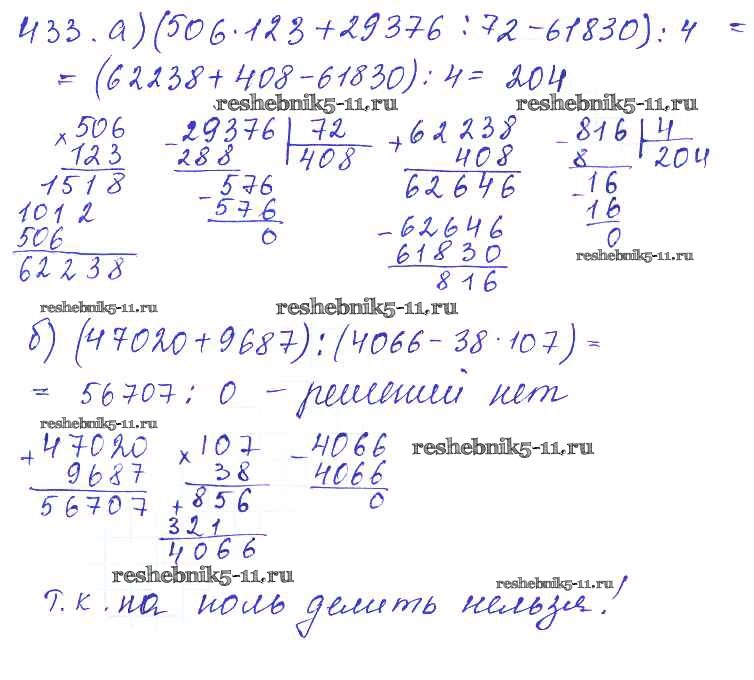 433. а) (506·123+29376:72-61830):4 =
= (62238+408-61830):4= 204
reshebnik5-11.ru reshebnik5-11.ru
× 506 - 29376 | 72 + 62238 - 816 | 4
123 288 408 408 8 204
1518 - 576 62646 - 16
1012 576 - 62646 16
506 0 61830 0
62238 816 reshebnik5-11.ru
reshebnik5-11.ru reshebnik5-11.ru
б) (47020+9687):(4066-38·107)=
= 56707: 0 - решений нет
reshebnik5-11.ru
+ 47020 × 107 - 4066 reshebnik5-11.ru
9687 38 4066
56707 + 856 0
321
4066
reshebnik5-11.ru reshebnik5-11.ru
т.к. на ноль делить нельзя!